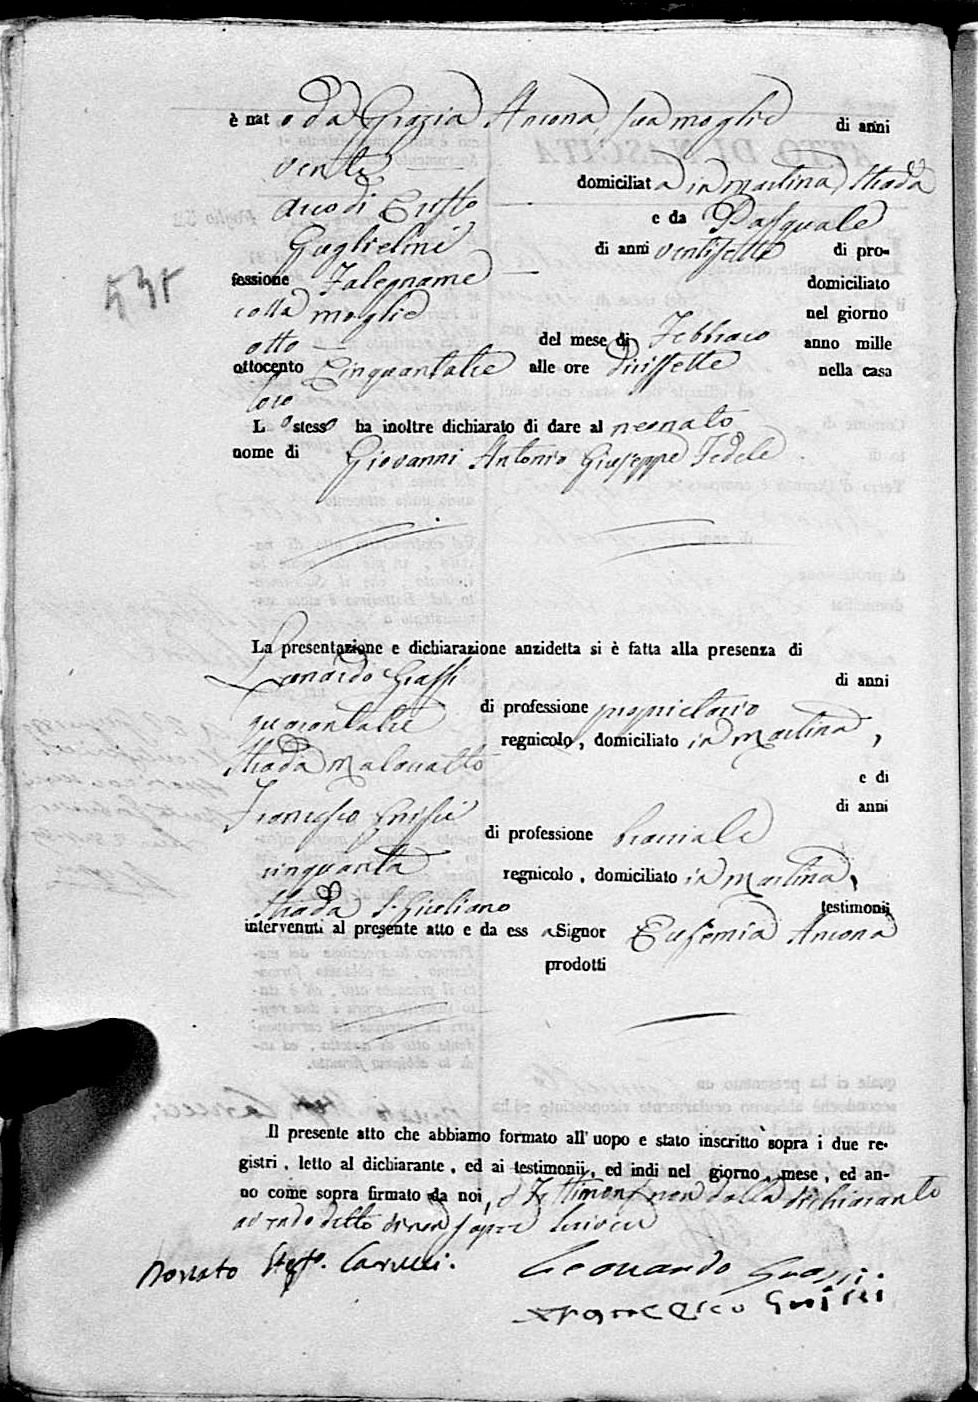 è nato da Grazia Ancona, sua moglie di anni
venti domiciliata in Martina, Strada
Arco di Cristo e da Pasquale
Guglielmi di anni ventisette di pro-
fessione Falegname domiciliato
colla moglie nel giorno
otto del mese di Febbraio anno mille
ottocento Cinquantatre alle ore diciissette nella casa
loro
Lo stesso ha inoltre dichiarato di dare al neonato
nome di Giovanni Antonio Giuseppe Fedele.
La presentazione e dichiarazione anzidetta si è fatta alla presenza di
Leonardo Grassi di anni
quarantatre di professione proprietario
regnicolo, domiciliato in Martina,
Strada e di
Francesco di anni
di professione bracciale
cinquanta regnicolo, domiciliato in Martina,
Strada S. Giuliano testimonii
intervenuti al presente atto e da essa Signor Eufemia Ancona
prodotti
Il presente atto che abbiamo formato all' uopo e stato inscritto sopra i due re-
gistri, letto al dichiarante, ed ai testimonii, ed indi nel giorno, mese, ed an-
no come sopra firmato da noi, e Testimonj non dalla dichiarante
avendo detto di non sapere scrivere
Donato Carucci.
Leonardo Grassi.
Francesco